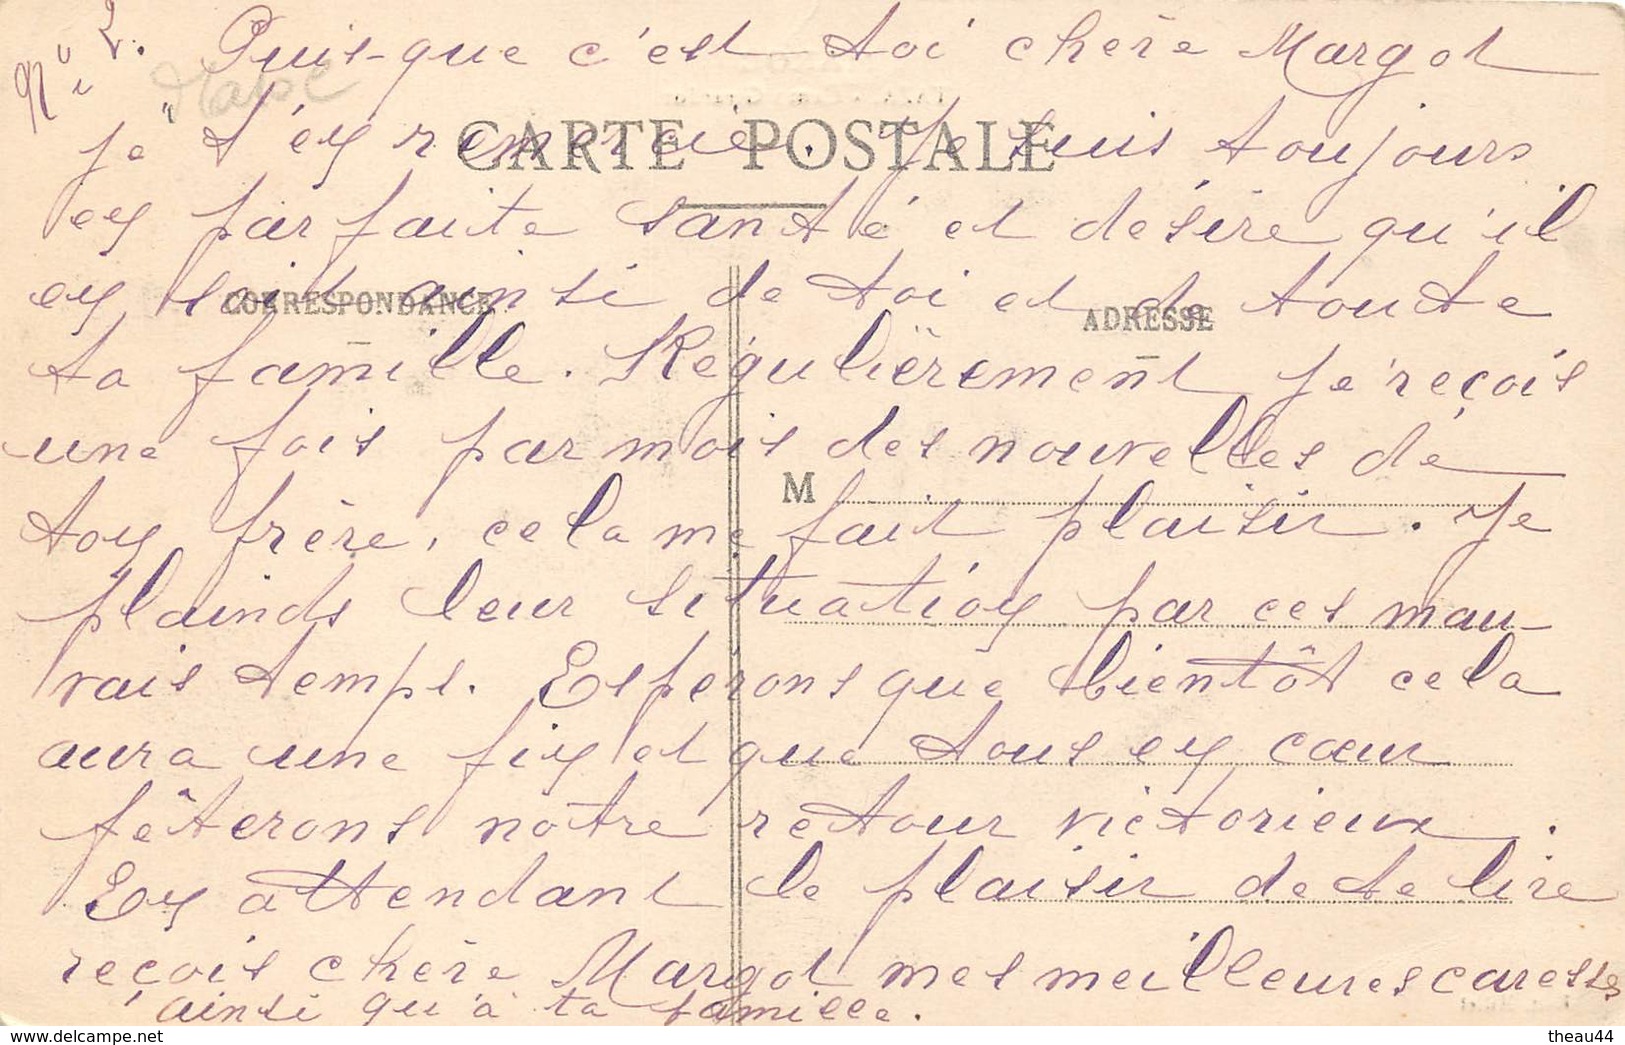 Nº 2. Puis-que c'est toi chère Margot
je t'en remercie. Je suis toujours
CARTE POSTALE
en parfaite santé et désire qu'il
en soit ainsi de toi et de toute
CORRESPONDANCE
ADRESSE
ta famille. Régulièrement je reçois
une fois par mois des nouvelles de
M
ton frère, cela me fait plaisir. Je
plainds leur situation par ces mau-
vais temps. Espérons que bientôt cela
aura une fin et que tous en cœur
fêterons notre retour victorieux.
En attendant le plaisir de te lire
reçois chère Margot mes meilleures caresses
ainsi qu'à ta famille.
www.delcampe.net
theau44